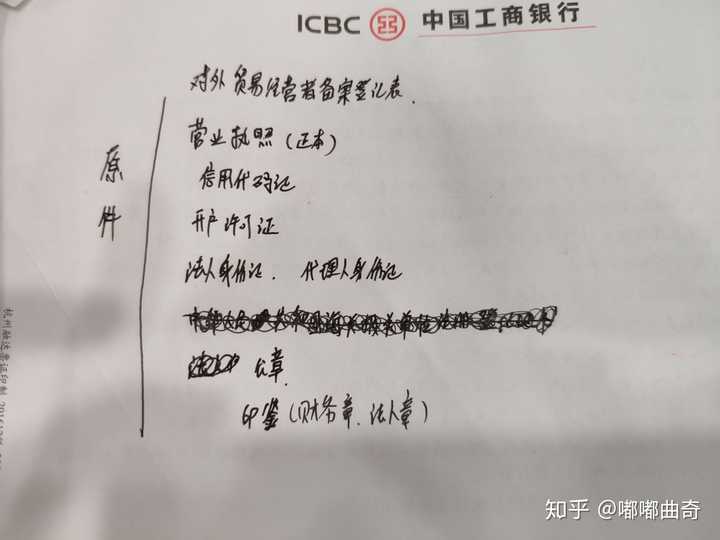 ICBC 中国工商银行
对外贸易经营者备案登记表.
原件
营业执照(正本)
信用代码证
开户许可证
法人身份证. 代理人身份证
公章.
印鉴(财务章、法人章)
杭州融达票证印制 2016
知乎 @嘟嘟曲奇